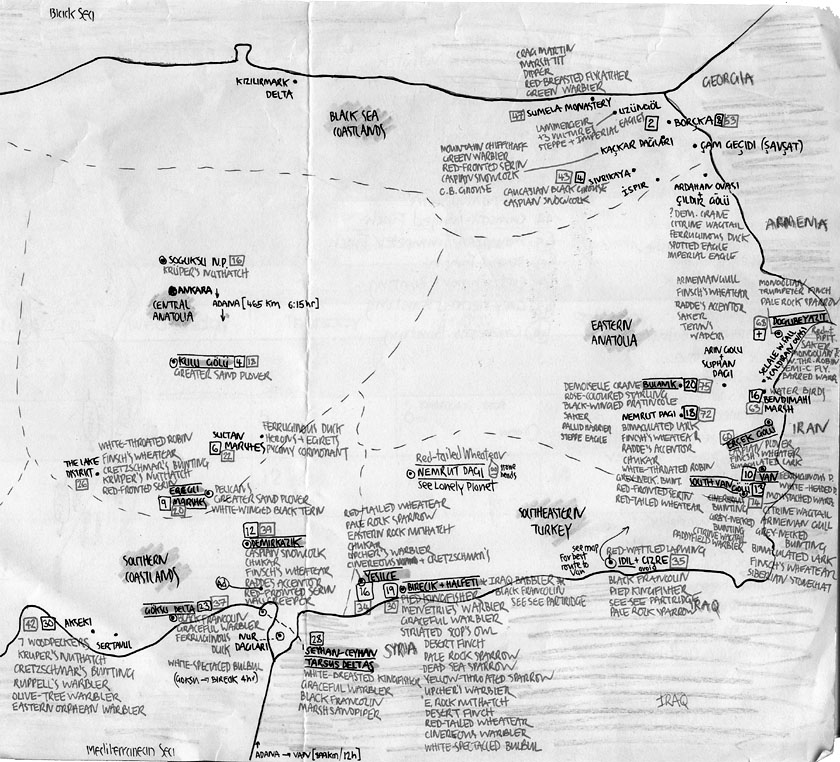 Black Sea
KIZILIRMARK
DELTA
BLACK SEA
COASTLANDS
CRAG MARTIN
MARSH TIT
DIPPER
RED-BREASTED FLYCATCHER
GREEN WARBLER
GEORGIA
47 SUMELA MONASTERY
UZÜNGÖL
LAMMERGEIER
+3 VULTURES
STEPPE + IMPERIAL
EAGLE
2
BORÇKA 3 53
KAÇKAR DAGLARI
ÇAM GEÇIDI (ŞAVŞAT)
MOUNTAIN CHIFFCHAFF
GREEN WARBLER
RED-FRONTED SERIN
CASPIAN SNOWCOCK
C.B. GROUSE
43 4 SIVRIKAYA
CAUCASIAN BLACK GROUSE
CASPIAN SNOWCOCK
İSPIR
ARDAHAN OVASI
+
ÇILDIR GÖLÜ
? DEM. CRANE
CITRINE WAGTAIL
FERRUGINOUS DUCK
SPOTTED EAGLE
IMPERIAL EAGLE
ARMENIA
SOGUKSU N.P. 16
KRUPER'S NUTHATCH
ANKARA
ADANA [465 KM 6:15hr]
CENTRAL
ANATOLIA
KULU GÖLÜ 4 18
GREATER SAND PLOVER
EASTERN
ANATOLIA
ARMENIAN GULL
FINSCH'S WHEATEAR
RADDE'S ACCENTOR
SAKER
TERNS
WADERS
MONGOLIAN
TRUMPETER FINCH
PALE ROCK SPARROW
68 DOGUBEYAZIT
ARIN GOLU
+
SUPHAN
DAGI
WATER BIRDS
16 BENDIMAHI
65 MARSH
DEMOISELLE CRANE
BULANIK 20 75
ROSE-COLOURED STARLING
BLACK-WINGED PRATINCOLE
SAKER
PALLID HARRIER
STEPPE EAGLE
NEMRUT DAGI 18 72
BIMACULATED LARK
FINSCH'S WHEATEAR
RADDE'S ACCENTOR
CHUKAR
WHITE-THROATED ROBIN
GREY-NECK. BUNT.
RED-FRONTED SERIN
RED-TAILED WHEATEAR
IRAN
ERÇEK GÖLÜ
FINSCH'S WHEATEAR
BIMACULATED LARK
10 VAN
SOUTH VAN GÖLÜ 13
74
BUNTING
GREY-NECKED
BUNTING
CITRINE WAGTAIL
PADDYFIELD WARBLER
FERRUGINOUS D.
WHITE-HEADED D
MOUSTACHED WARB
CITRINE WAGTAIL
ARMENIAN GULL
GREY-NECKED
BUNTING
BIMACULATED LARK
FINSCH'S WHEATEAR
SIBERIAN STONECHAT
WHITE-THROATED ROBIN
FINSCH'S WHEATEAR
CRETZSCHMAR'S BUNTING
KRUPER'S NUTHATCH
RED-FRONTED SERIN
THE LAKE
DISTRICT
26
SULTAN
6 MARSHES
22
FERRUGINOUS DUCK
HERONS + EGRETS
PYGMY CORMORANT
EREGLI
9 MARSHES
20
PELICANS
GREATER SAND PLOVER
WHITE-WINGED BLACK TERN
Red-tailed Wheatear
NEMRUT DAGI
stone
heads
See Lonely Planet
SOUTHEASTERN
TURKEY
12 39
DEMIRKAZIK
CASPIAN SNOWCOCK
CHUKAR
FINSCH'S WHEATEAR
RADDE'S ACCENTOR
RED-FRONTED SERIN
WALLCREEPER
RED-TAILED WHEATEAR
PALE ROCK SPARROW
EASTERN ROCK NUTHATCH
CHUKAR
UPCHER'S WARBLER
CINEREOUS + CRETZSCHMAR'S
SOUTHERN
COASTLANDS
YESILCE
16
34
19
30
BIRECIK + HALFETI
IRAQ BABBLER
BLACK FRANCOLIN
SEE SEE PARTRIDGE
PIED KINGFISHER
MENETRIES' WARBLER
GRACEFUL WARBLER
STRIATED SCOP'S OWL
DESERT FINCH
PALE ROCK SPARROW
DEAD SEA SPARROW
YELLOW-THROATED SPARROW
UPCHER'S WARBLER
E. ROCK NUTHATCH
DESERT FINCH
RED-TAILED WHEATEAR
CINEREOUS WARBLER
WHITE-SPECTACLED BULBUL
see map
for best
route to
Van
RED-WATTLED LAPWING
IDIL + CIZRE 35
BLACK FRANCOLIN
PIED KINGFISHER
SEE-SEE PARTRIDGE
PALE ROCK SPARROW
IRAQ
GÖKSU DELTA 23 37
BLACK FRANCOLIN
GRACEFUL WARBLER
FERRUGINOUS
DUCK
WHITE-SPECTACLED BULBUL
(GOKSU → BIRECIK 4hr)
NUR
DAGLARI
42 30 AKSEKI
SERTAVUL
7 WOODPECKERS
KRUPER'S NUTHATCH
CRETZSCHMAR'S BUNTING
RUPPELL'S WARBLER
OLIVE-TREE WARBLER
EASTERN ORPHEAN WARBLER
28
SEYHAN-CEYHAN
TARSUS DELTAS
WHITE-BREASTED KINGFISHER
GRACEFUL WARBLER
BLACK FRANCOLIN
MARSH SANDPIPER
SYRIA
IRAQ
Mediterranean Sea